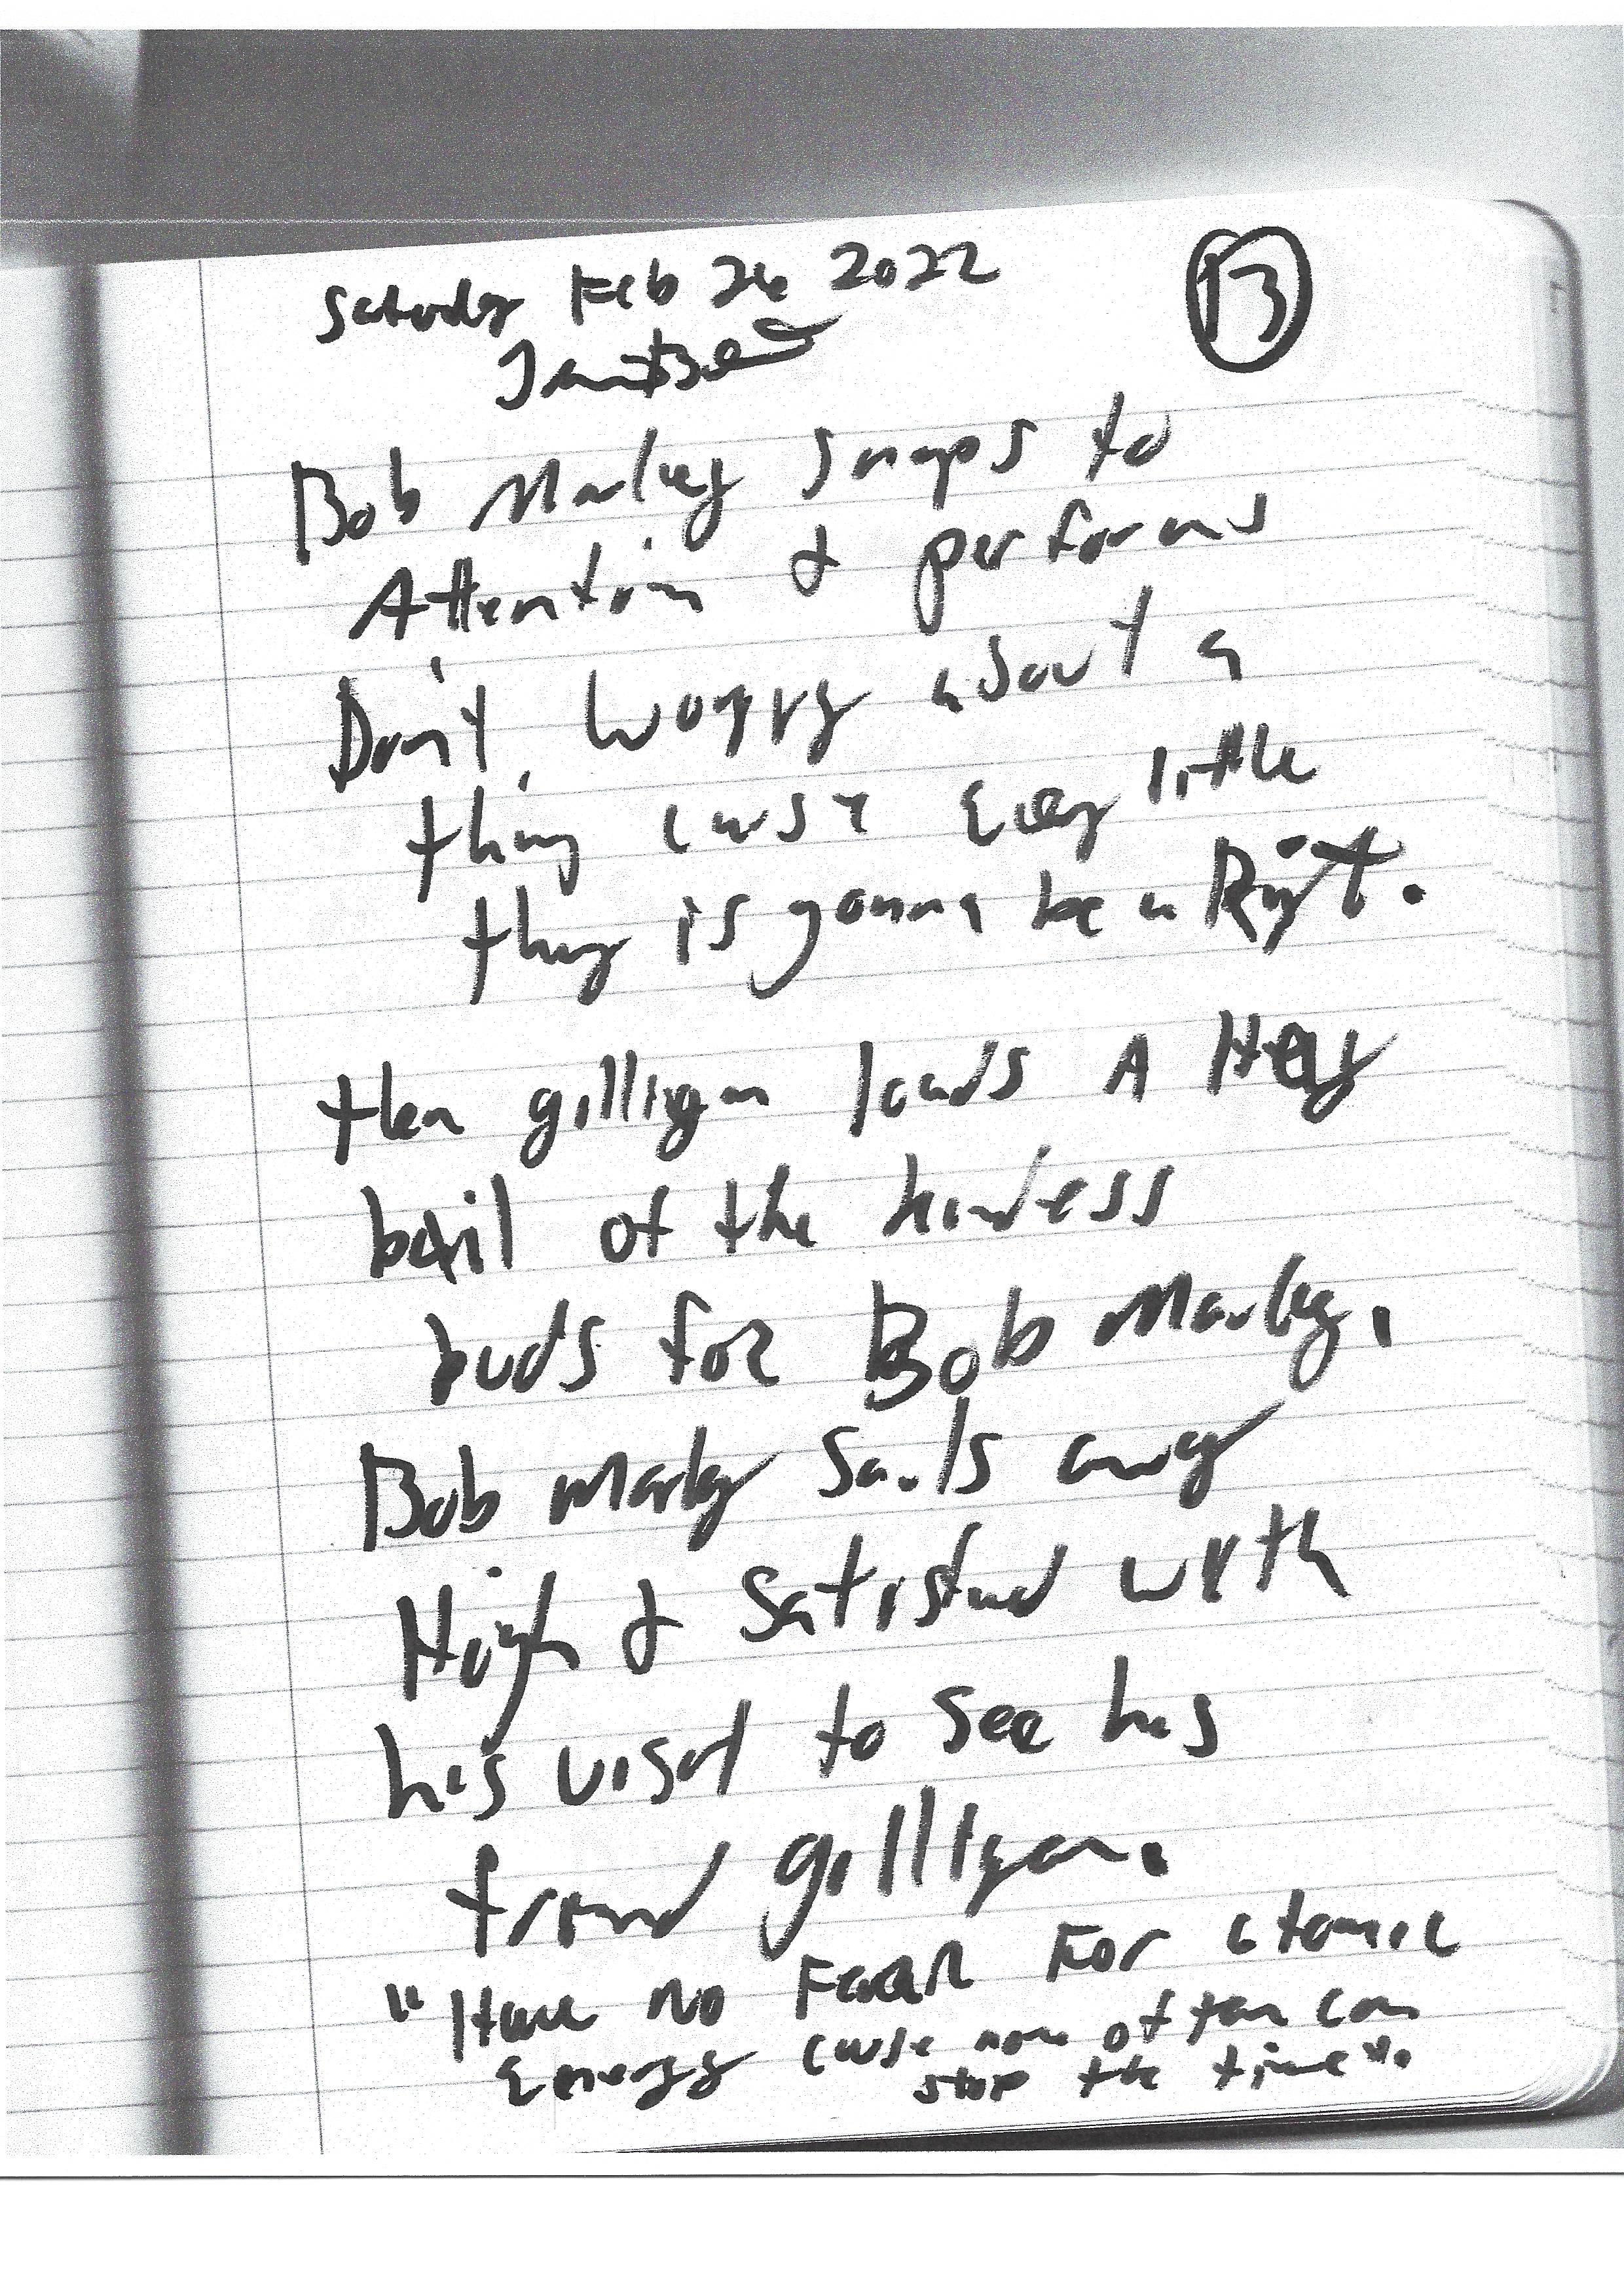 Saturday Feb 26 2022
13
Bob Marley snaps to
Attention & performs
Don't worry about a
thing cause every little
thing is gonna be a Right.
then gilligan loads A Hay
bail of the kindess
buds for Bob Marley.
Bob Marley Sails away
High & Satisfied with
his visit to see his
friend gilligan.
"Have no Fear For atomic
Energy cause none of them can
stop the time".